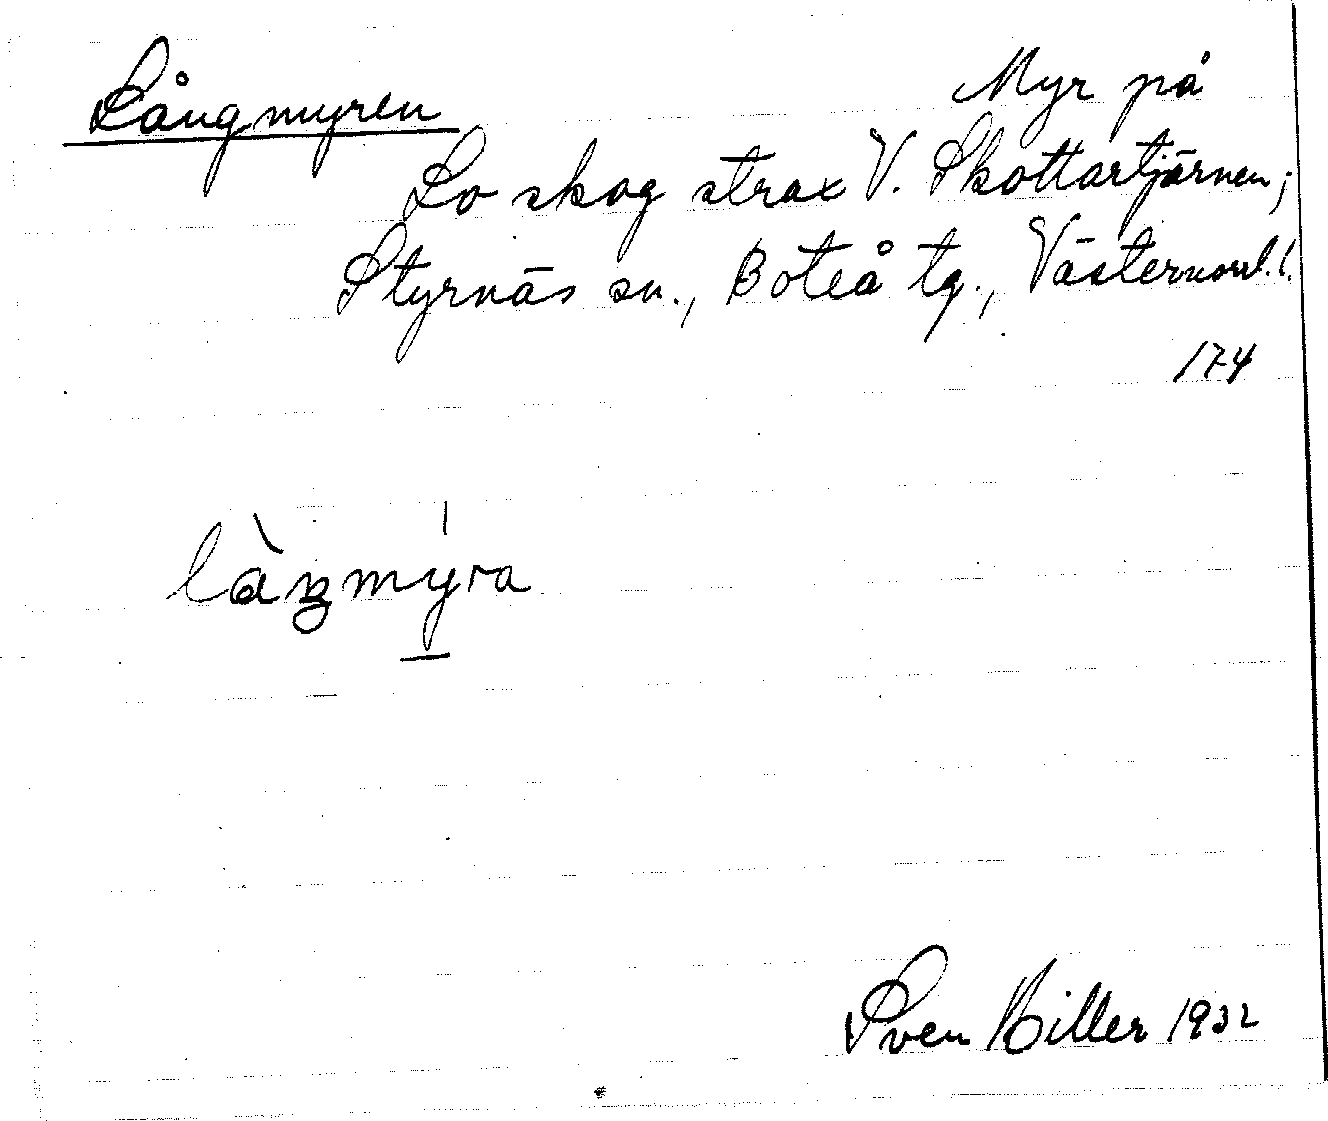 Långmyren Myr på
Lo skog strax V. Skottartjärnen;
Styrnäs sn., Boteå tg., Västernorrl. l.
174
làŋmýra
Sven Hiller 1932